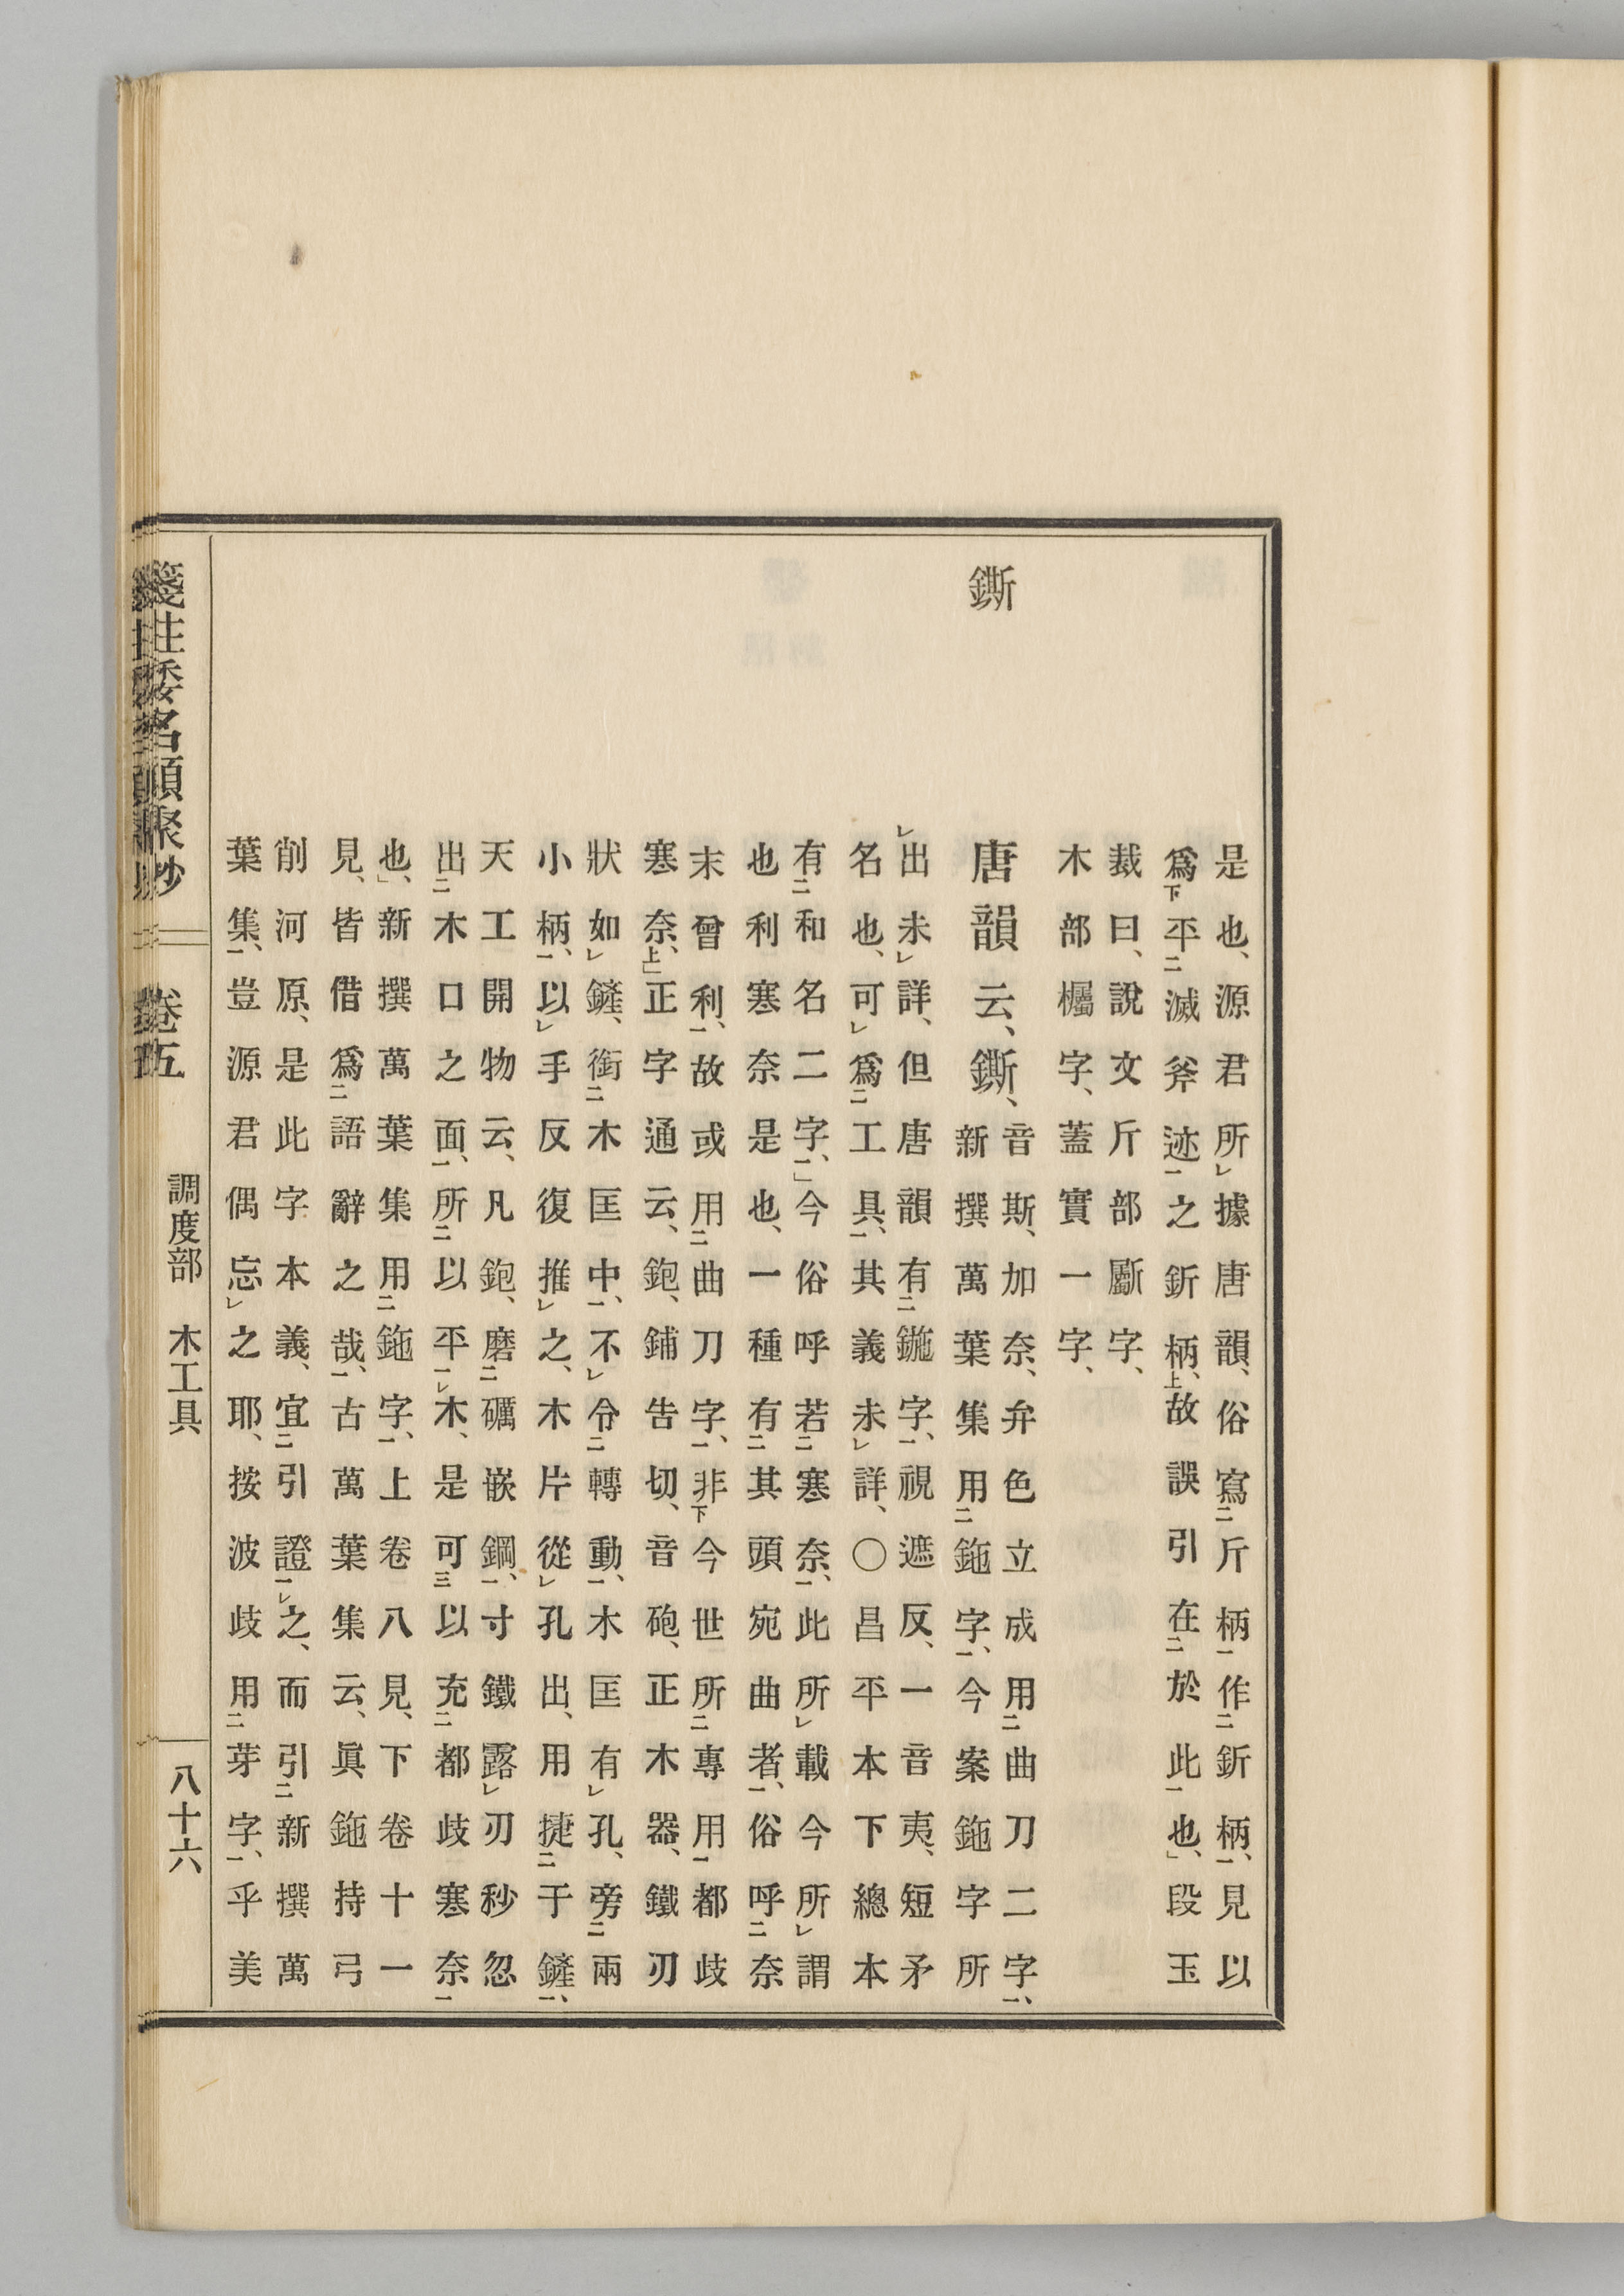 是也、源君所㆑據唐韻、俗寫㆓斤柄㆒作㆓釿柄㆒、見以
爲㆘平㆓滅斧迹㆒之釿柄㆖、故誤引在㆓於此㆒也、」段玉
裁曰、說文斤部斸字、
木部欘字、蓋實一字、
鐁
唐韻云、鐁、
音斯、加奈、弁色立成用㆓曲刀二字㆒、
新撰萬葉集用㆓䤭字㆒、今案䤭字所
㆑出未㆑詳、但唐韻有㆓鍦字㆒、視遮反、一音夷、短矛
名也、可㆑爲㆓工具㆒、其義未㆑詳、〇昌平本下總本
有㆓和名二字㆒、」今俗呼若㆓寒奈㆒、此所㆑載今所㆑謂
也利寒奈是也、一種有㆓其頭宛曲者㆒、俗呼㆓奈
末曾利㆒、故或用㆓曲刀字㆒、非㆘今世所㆓專用㆒都歧
寒奈㆖、」正字通云、鉋、鋪告切、音砲、正木器、鐵刃
狀如㆑鏟、銜㆓木匡中㆒、不㆑令㆓轉動㆒、木匡有㆑孔、旁㆓兩
小柄㆒、以㆑手反復推㆑之、木片從㆑孔出、用捷㆓于鏟㆒、
天工開物云、凡鉋、磨㆓礪嵌鋼㆒、寸鐵露㆑刃秒忽
出㆓木口之面㆒、所㆓以平㆒㆑木、是可㆔以充㆓都歧寒奈㆒
也、」新撰萬葉集用㆓䤭字㆒、上卷八見、下卷十一
見、皆借爲㆓語辭之哉㆒、古萬葉集云、眞䤭持弓
削河原、是此字本義、宜㆓引證㆒㆑之、而引㆓新撰萬
葉集㆒、豈源君偶忘㆑之耶、按波歧用㆓芽字㆒、乎美
箋注倭名類聚抄 卷五 調度部 木工具 八十六